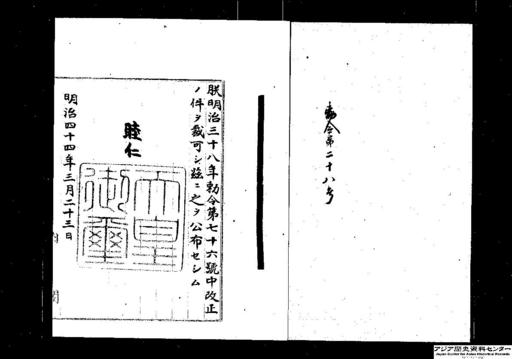 勅令第二十八号
朕明治三十八年勅令第七十六號中改正
ノ件ヲ裁可シ玆ニ之ヲ公布セシム
睦仁
天皇御璽
明治四十四年三月二十三日
内閣
アジア歴史資料センター
Japan Center for Asian Historical Records